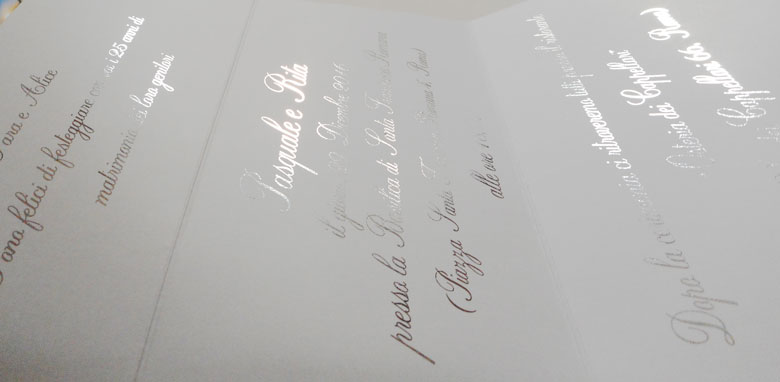 Sara e Alice
sono felici di festeggiare con voi i 25 anni di
matrimonio dei loro genitori
Pasquale e Rita
il giorno Dicembre
presso la Basilica di Santa Francesca Romana
(Piazza Santa Francesca Romana 4, Roma)
alle ore
Dopo la cerimonia ci ritroveremo tutti presso il ristorante
Osteria dei Cappellari
Cappellari 66, Roma)